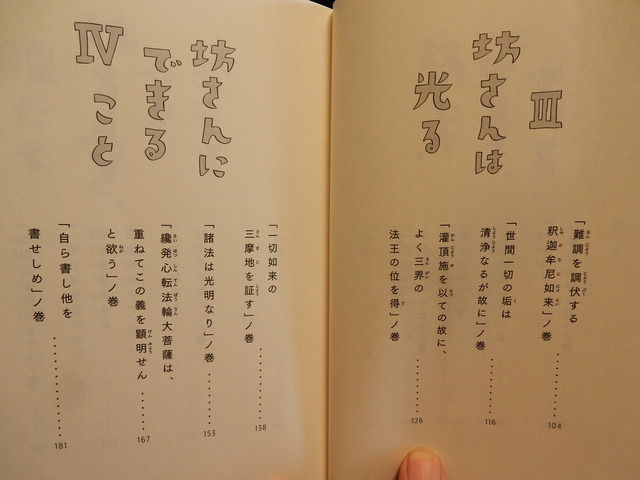 Ⅲ
坊さんは
光る
「難調を調伏する
釈迦牟尼如来」ノ巻
104
「世間一切の垢は
清浄なるが故に」ノ巻
116
「灌頂施を以ての故に、
よく三界の
法王の位を得」ノ巻
126
Ⅳ
坊さんに
できる
こと
「一切如来の
三摩地を証す」ノ巻
138
「諸法は光明なり」ノ巻
153
「纔発心転法輪大菩薩は、
重ねてこの義を顕明せん
と欲う」ノ巻
167
「自ら書し他を
書せしめ」ノ巻
181